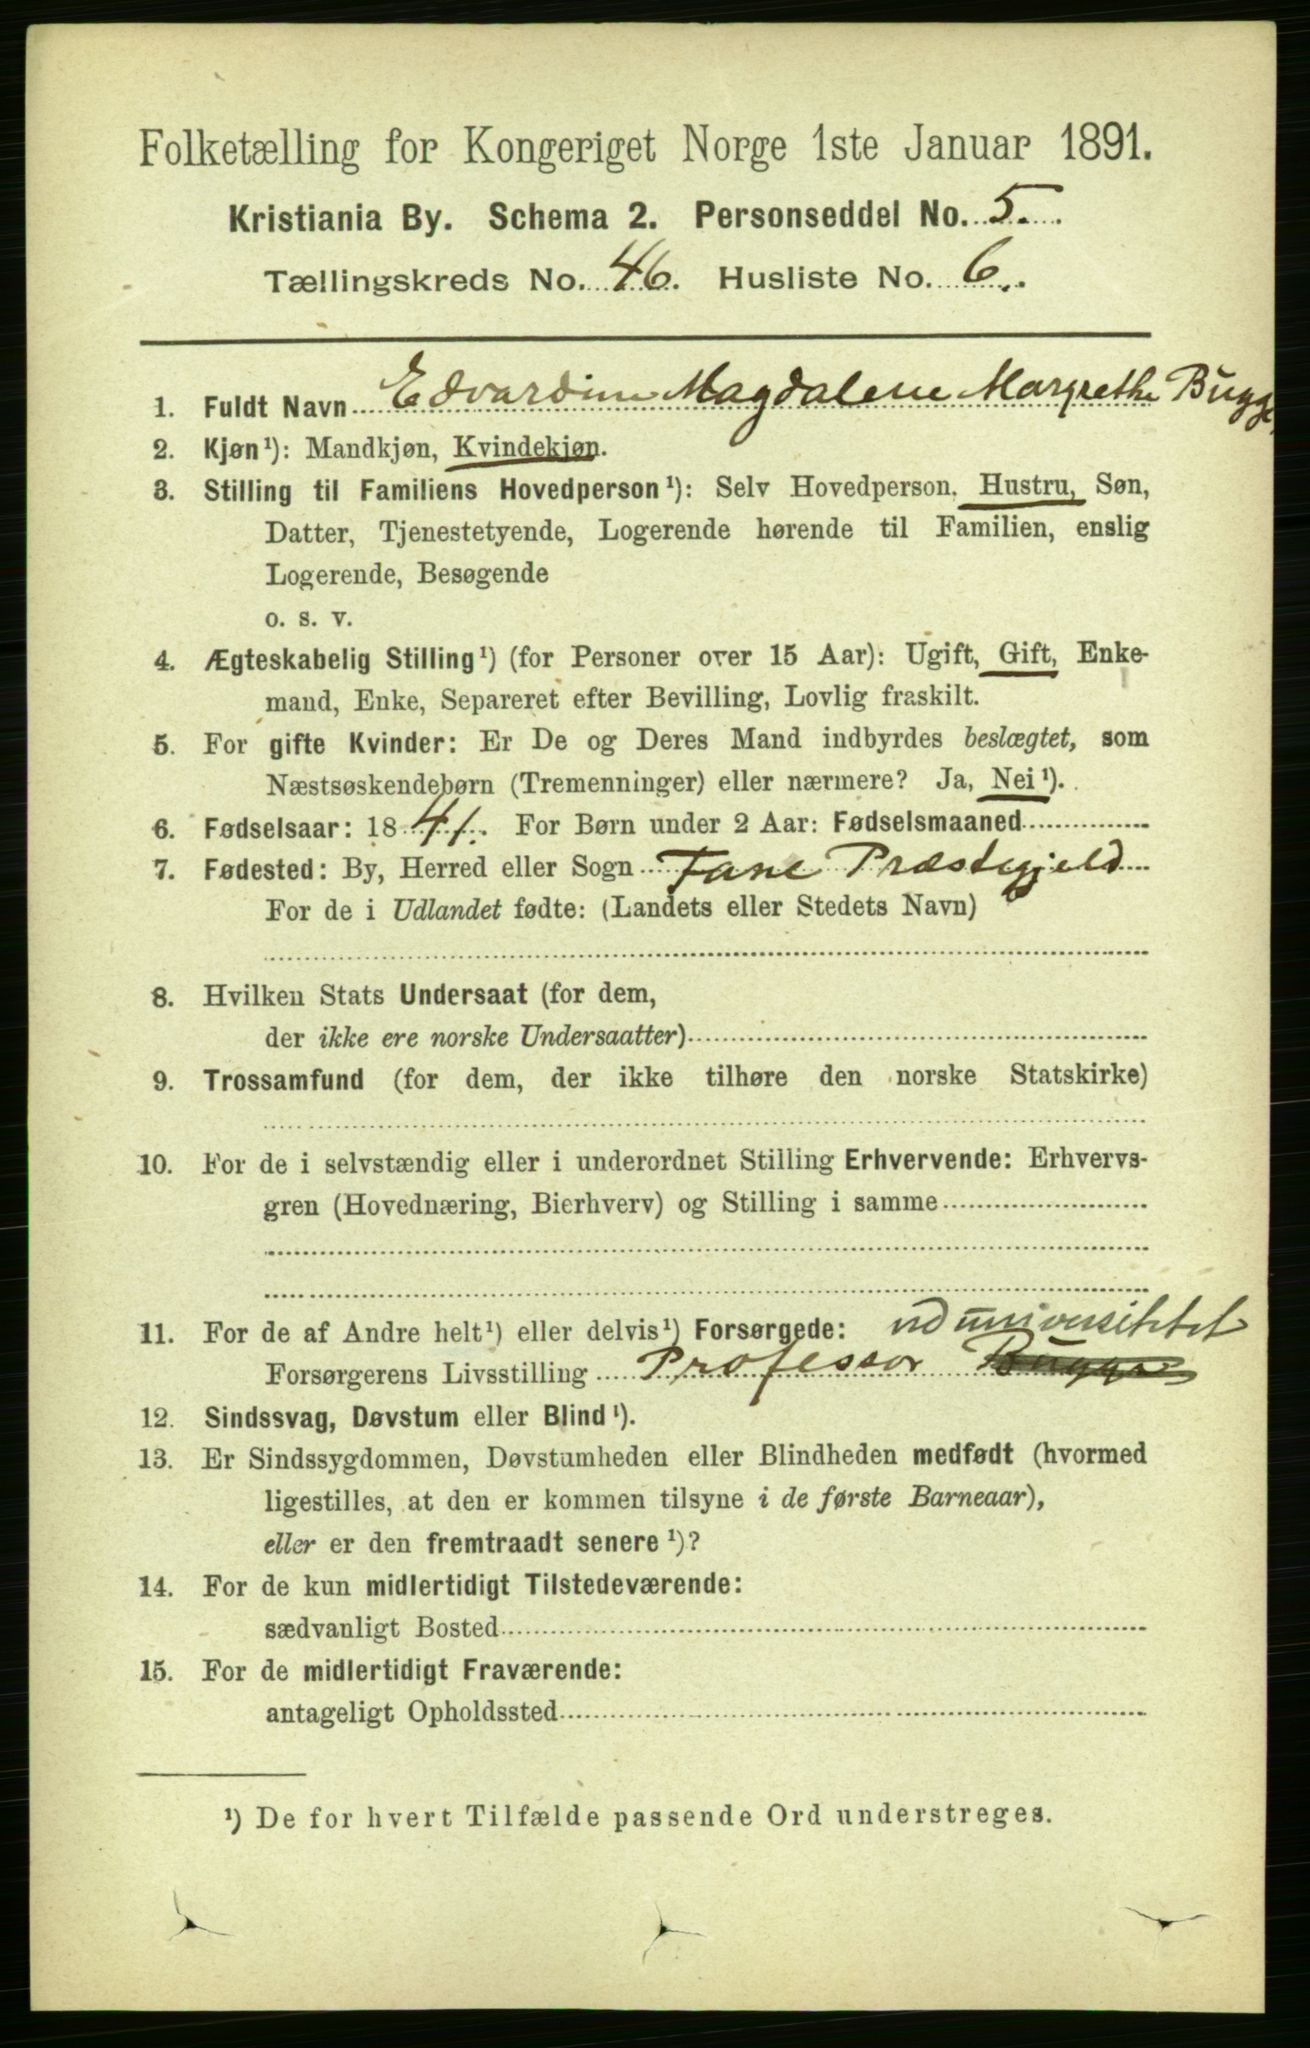 Folketælling for Kongeriget Norge 1ste Januar 1891.
Kristiania By. Schema 2. Personseddel No. 5.
Tællingskreds No. 46. Husliste No. 6.
1. Fuldt Navn Edvardine Magdalene Margrethe Bugge
2. Kjøn¹): Mandkjøn, Kvindekjøn.
3. Stilling til Familiens Hovedperson¹): Selv Hovedperson, Hustru, Søn,
Datter, Tjenestetyende, Logerende hørende til Familien, enslig
Logerende, Besøgende
o. s. v.
4. Ægteskabelig Stilling¹) (for Personer over 15 Aar): Ugift, Gift, Enke-
mand, Enke, Separeret efter Bevilling, Lovlig fraskilt.
5. For gifte Kvinder: Er De og Deres Mand indbyrdes beslægtet, som
Næstsøskendebørn (Tremenninger) eller nærmere? Ja, Nei¹).
6. Fødselsaar: 1841. For Børn under 2 Aar: Fødselsmaaned
7. Fødested: By, Herred eller Sogn Fane Præstegjeld
For de i Udlandet fødte: (Landets eller Stedets Navn)
8. Hvilken Stats Undersaat (for dem,
der ikke ere norske Undersaatter)
9. Trossamfund (for dem, der ikke tilhøre den norske Statskirke)
10. For de i selvstændig eller i underordnet Stilling Erhvervende: Erhvervs-
gren (Hovednæring, Bierhverv) og Stilling i samme
11. For de af Andre helt¹) eller delvis¹) Forsørgede: ved universitetet
Forsørgerens Livsstilling Professor Bugge
12. Sindssvag, Døvstum eller Blind¹).
13. Er Sindssygdommen, Døvstumheden eller Blindheden medfødt (hvormed
ligestilles, at den er kommen tilsyne i de første Barneaar),
eller er den fremtraadt senere¹)?
14. For de kun midlertidigt Tilstedeværende:
sædvanligt Bosted
15. For de midlertidigt Fraværende:
antageligt Opholdssted
¹) De for hvert Tilfælde passende Ord understreges.